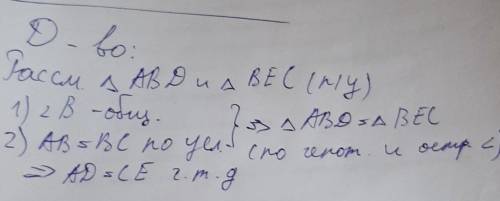 Д-во:
Рассм △ ABD и △ BEC (п/у)
1) ∠B - общ.
2) AB = BC по усл. } => △ ABD = △ BEC
(по гипот. и остр ∠)
=> AD = CE ч.т.д